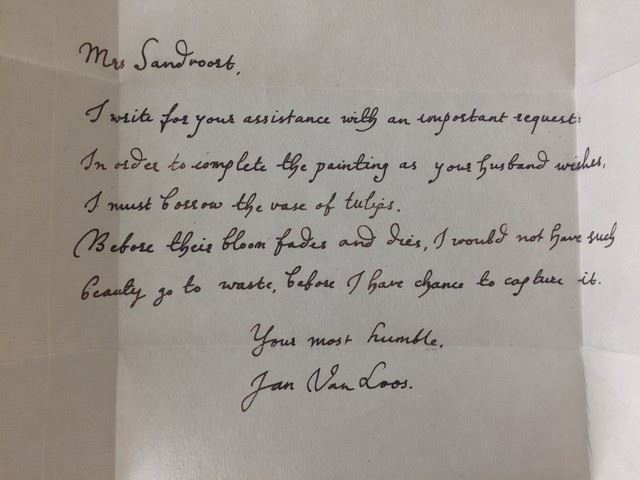 Mrs Sandvoort,
I write for your assistance with an important request:
In order to complete the painting as your husband wishes,
I must borrow the vase of tulips.
Before their bloom fades and dies, I would not have such
beauty go to waste, before I have chance to capture it.
Your most humble,
Jan Van Loos.